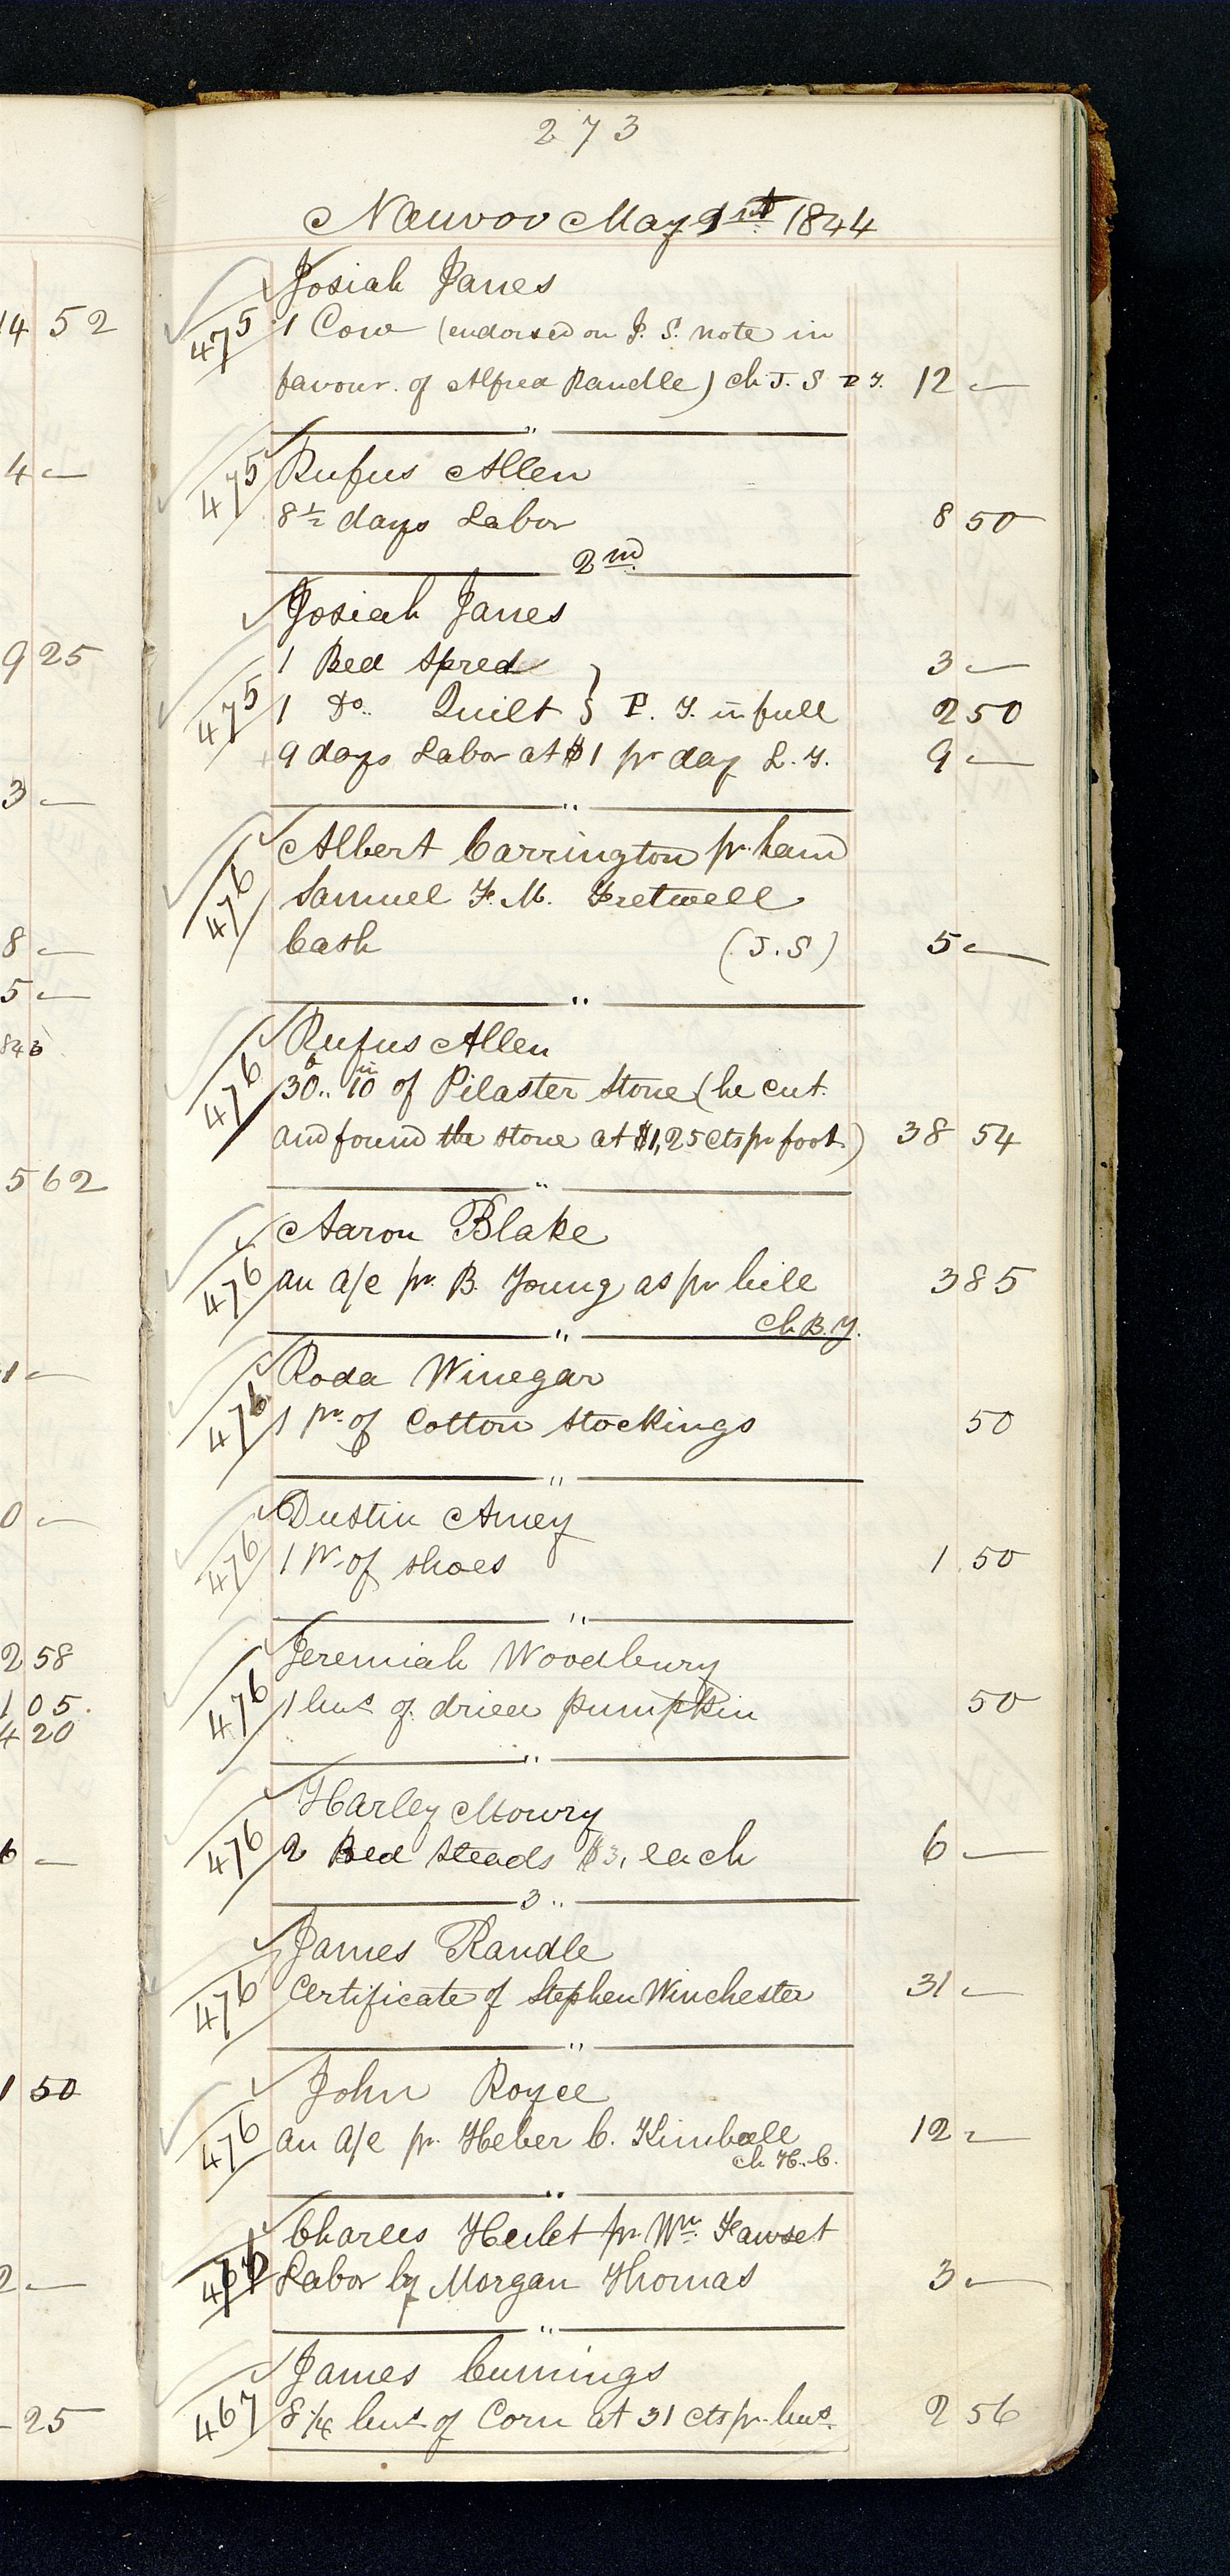 273
Nauvoo May 1st 1844
14 52
475
Josiah Janes
1 Cow (endorsed on J. S. note in
favour. of Alfred Randle) ch J. S T. T. 12 —
4 —
475
Rufus Allen
8½ days Labor 8 50
2nd
Josiah Janes
9 25
475
1 Bed Spred 3 —
1 Do. Quilt } P. T. in full 2 50
9 days Labor at $1 pr day L. T. 9 —
3 —
"
476
Albert Carrington pr. hand
Samuel F. M. Fretwell
Cash (J. S) 5 —
8 —
5 —
"
476
Rufus Allen
30 ft .. 10 in of Pilaster Stone (he cut
and found the stone at $1,25 cts pr foot) 38 54
5 62
"
476
Aaron Blake
an a/c pr. B. Young as pr bill 3 85
ch B. Y.
1 —
"
476
Roda Winegar
1 pr. of Cotton Stockings 50
0 —
"
476
Dustin Amey
1 pr of shoes 1 50
2 58
1 05.
4 20
"
476
Jeremiah Woodbury
1 bus of dried pumpkin 50
6 —
"
476
Harley Mowry
2 Bed Steads $3, each 6 —
3 ..
476
James Randle
Certificate of Stephen Winchester 31 —
1 50
"
476
John Royce
an a/c pr. Heber C. Kimball 12 —
ch H. C.
2 —
"
Charles Heulet pr. Wm. Fawset
Labor by Morgan Thomas 3 —
25
"
467
James Cumings
8¼ bus of Corn at 31 cts pr. bus. 2 56